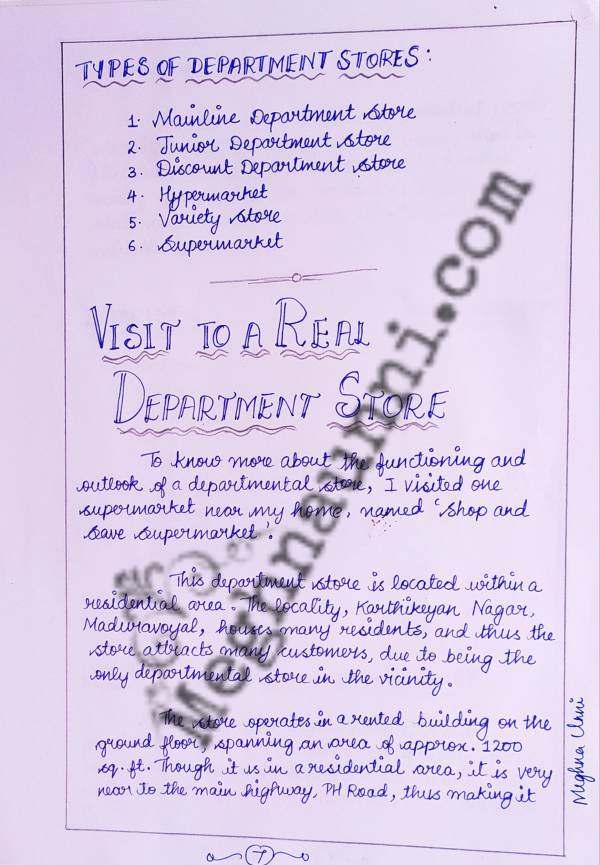 TYPES OF DEPARTMENT STORES:
1. Mainline Department Store
2. Junior Department Store
3. Discount Department Store
4. Hypermarket
5. Variety Store
6. Supermarket
VISIT TO A REAL
DEPARTMENT STORE
To know more about the functioning and
outlook of a departmental store, I visited one
supermarket near my home, named 'Shop and
Save Supermarket'.
This department store is located within a
residential area. The locality, Karthikeyan Nagar,
Maduravoyal, houses many residents, and thus the
store attracts many customers, due to being the
only departmental store in the vicinity.
The store operates in a rented building on the
ground floor, spanning an area of approx. 1200
sq. ft. Though it is in a residential area, it is very
near to the main highway, PH Road, thus making it
7
Meghna Unni
Meghnaunni.com